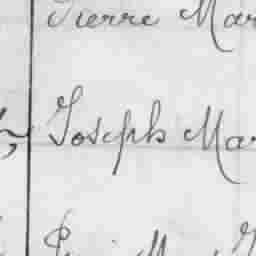 Pierre Mar
Joseph Mar